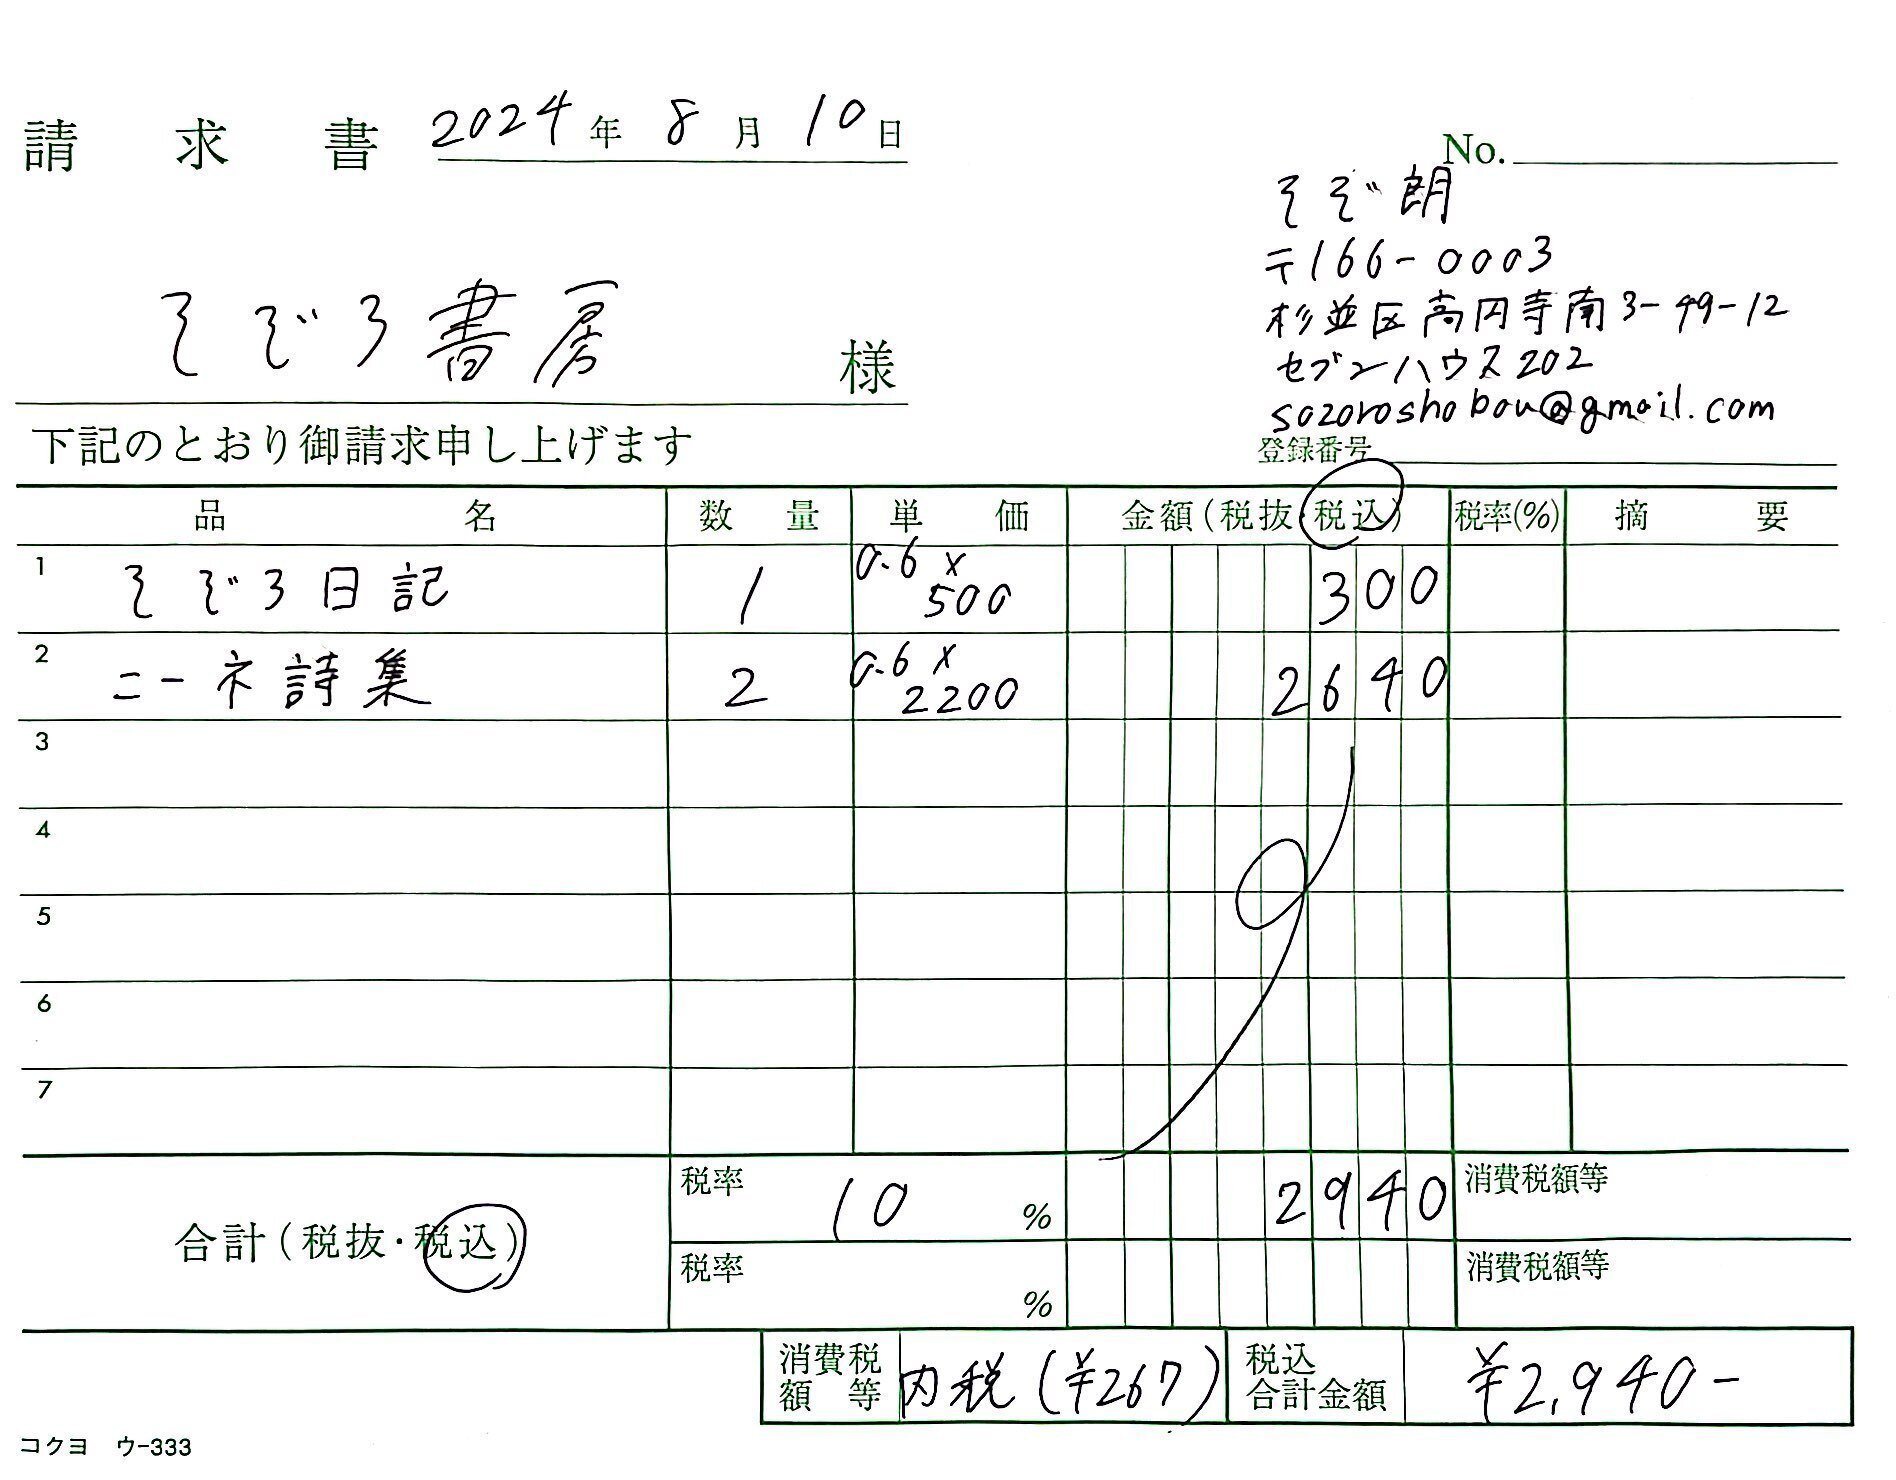 請求書 2024年 8月 10日
No.
そぞ朗
〒166-0003
杉並区高円寺南3-49-12
セブンハウス202
sozoroshobou@gmail.com
登録番号
そぞろ書房 様
下記のとおり御請求申し上げます
品名 数量 単価 金額(税抜・税込) 税率(%) 摘要
1 そぞろ日記 1 0.6× 500 300
2 ニーネ詩集 2 0.6× 2200 2640
3
4
5
6
7
合計(税抜・税込) 税率 10 % 2940 消費税額等
税率 % 消費税額等
消費税額等 内税(¥267) 税込合計金額 ¥2,940-
コクヨ ウ-333